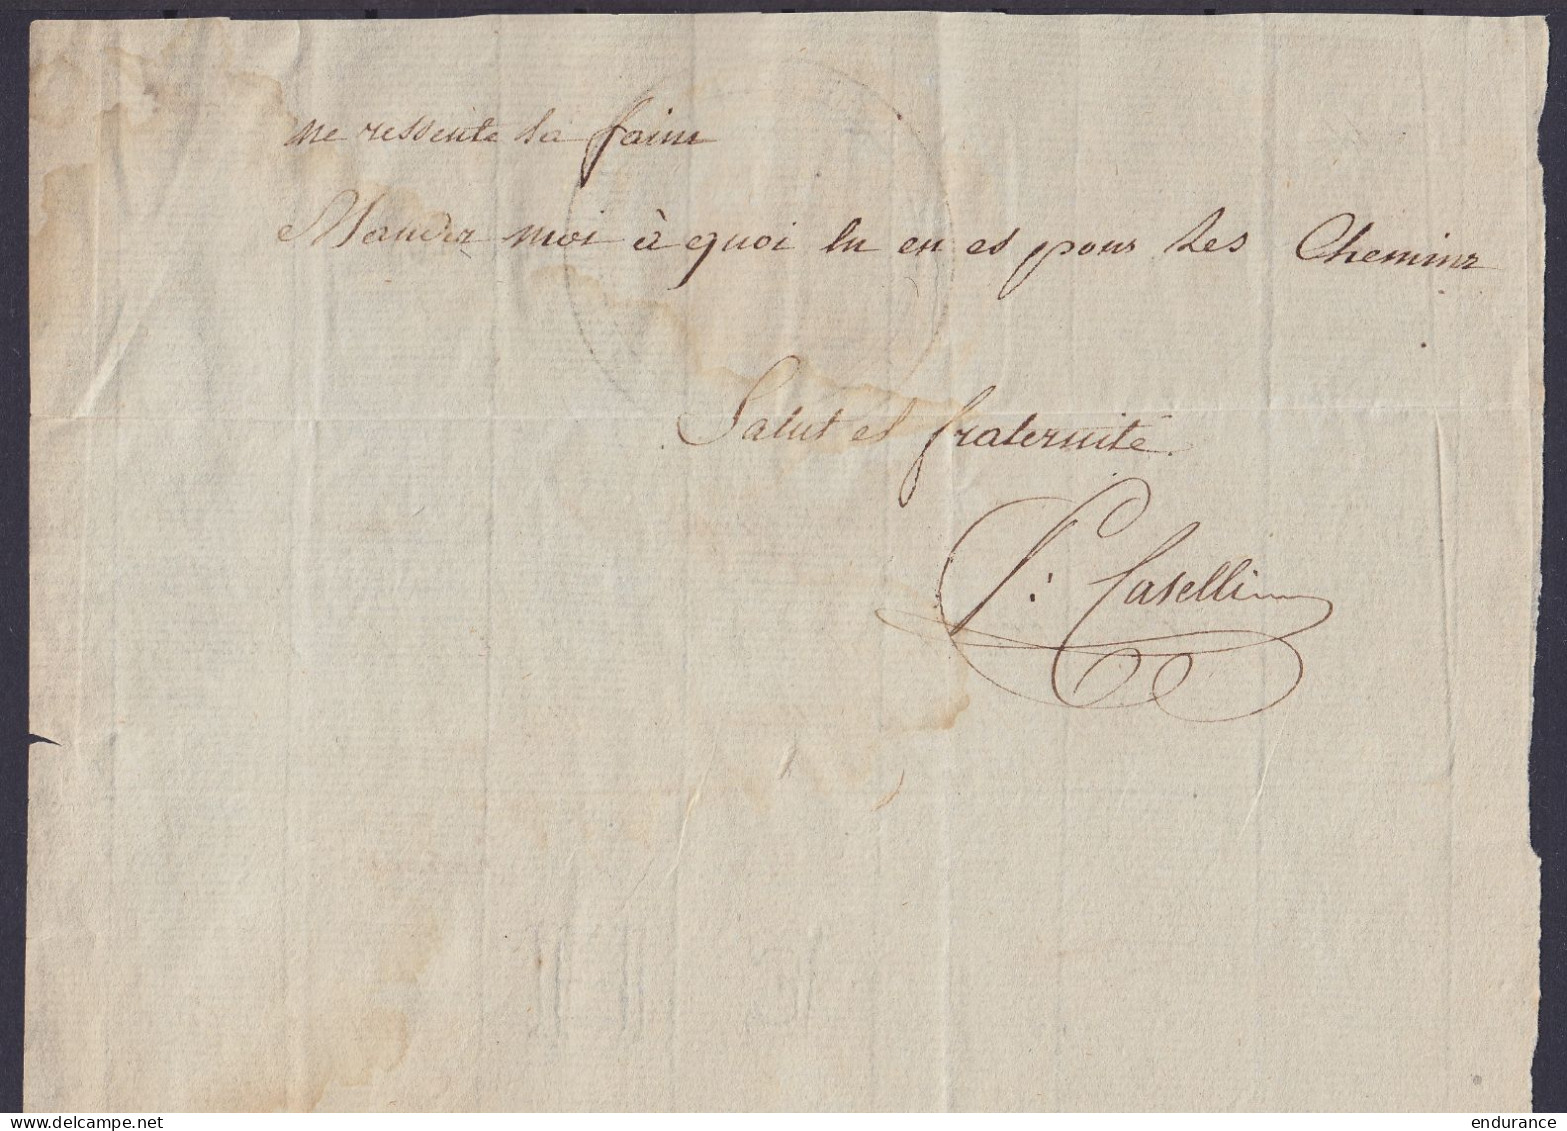 ne ressente la faim
Mandez moi à quoi tu en es pour les Chemins
Salut et fraternité
P: Caselli
delcampe.net
endurance